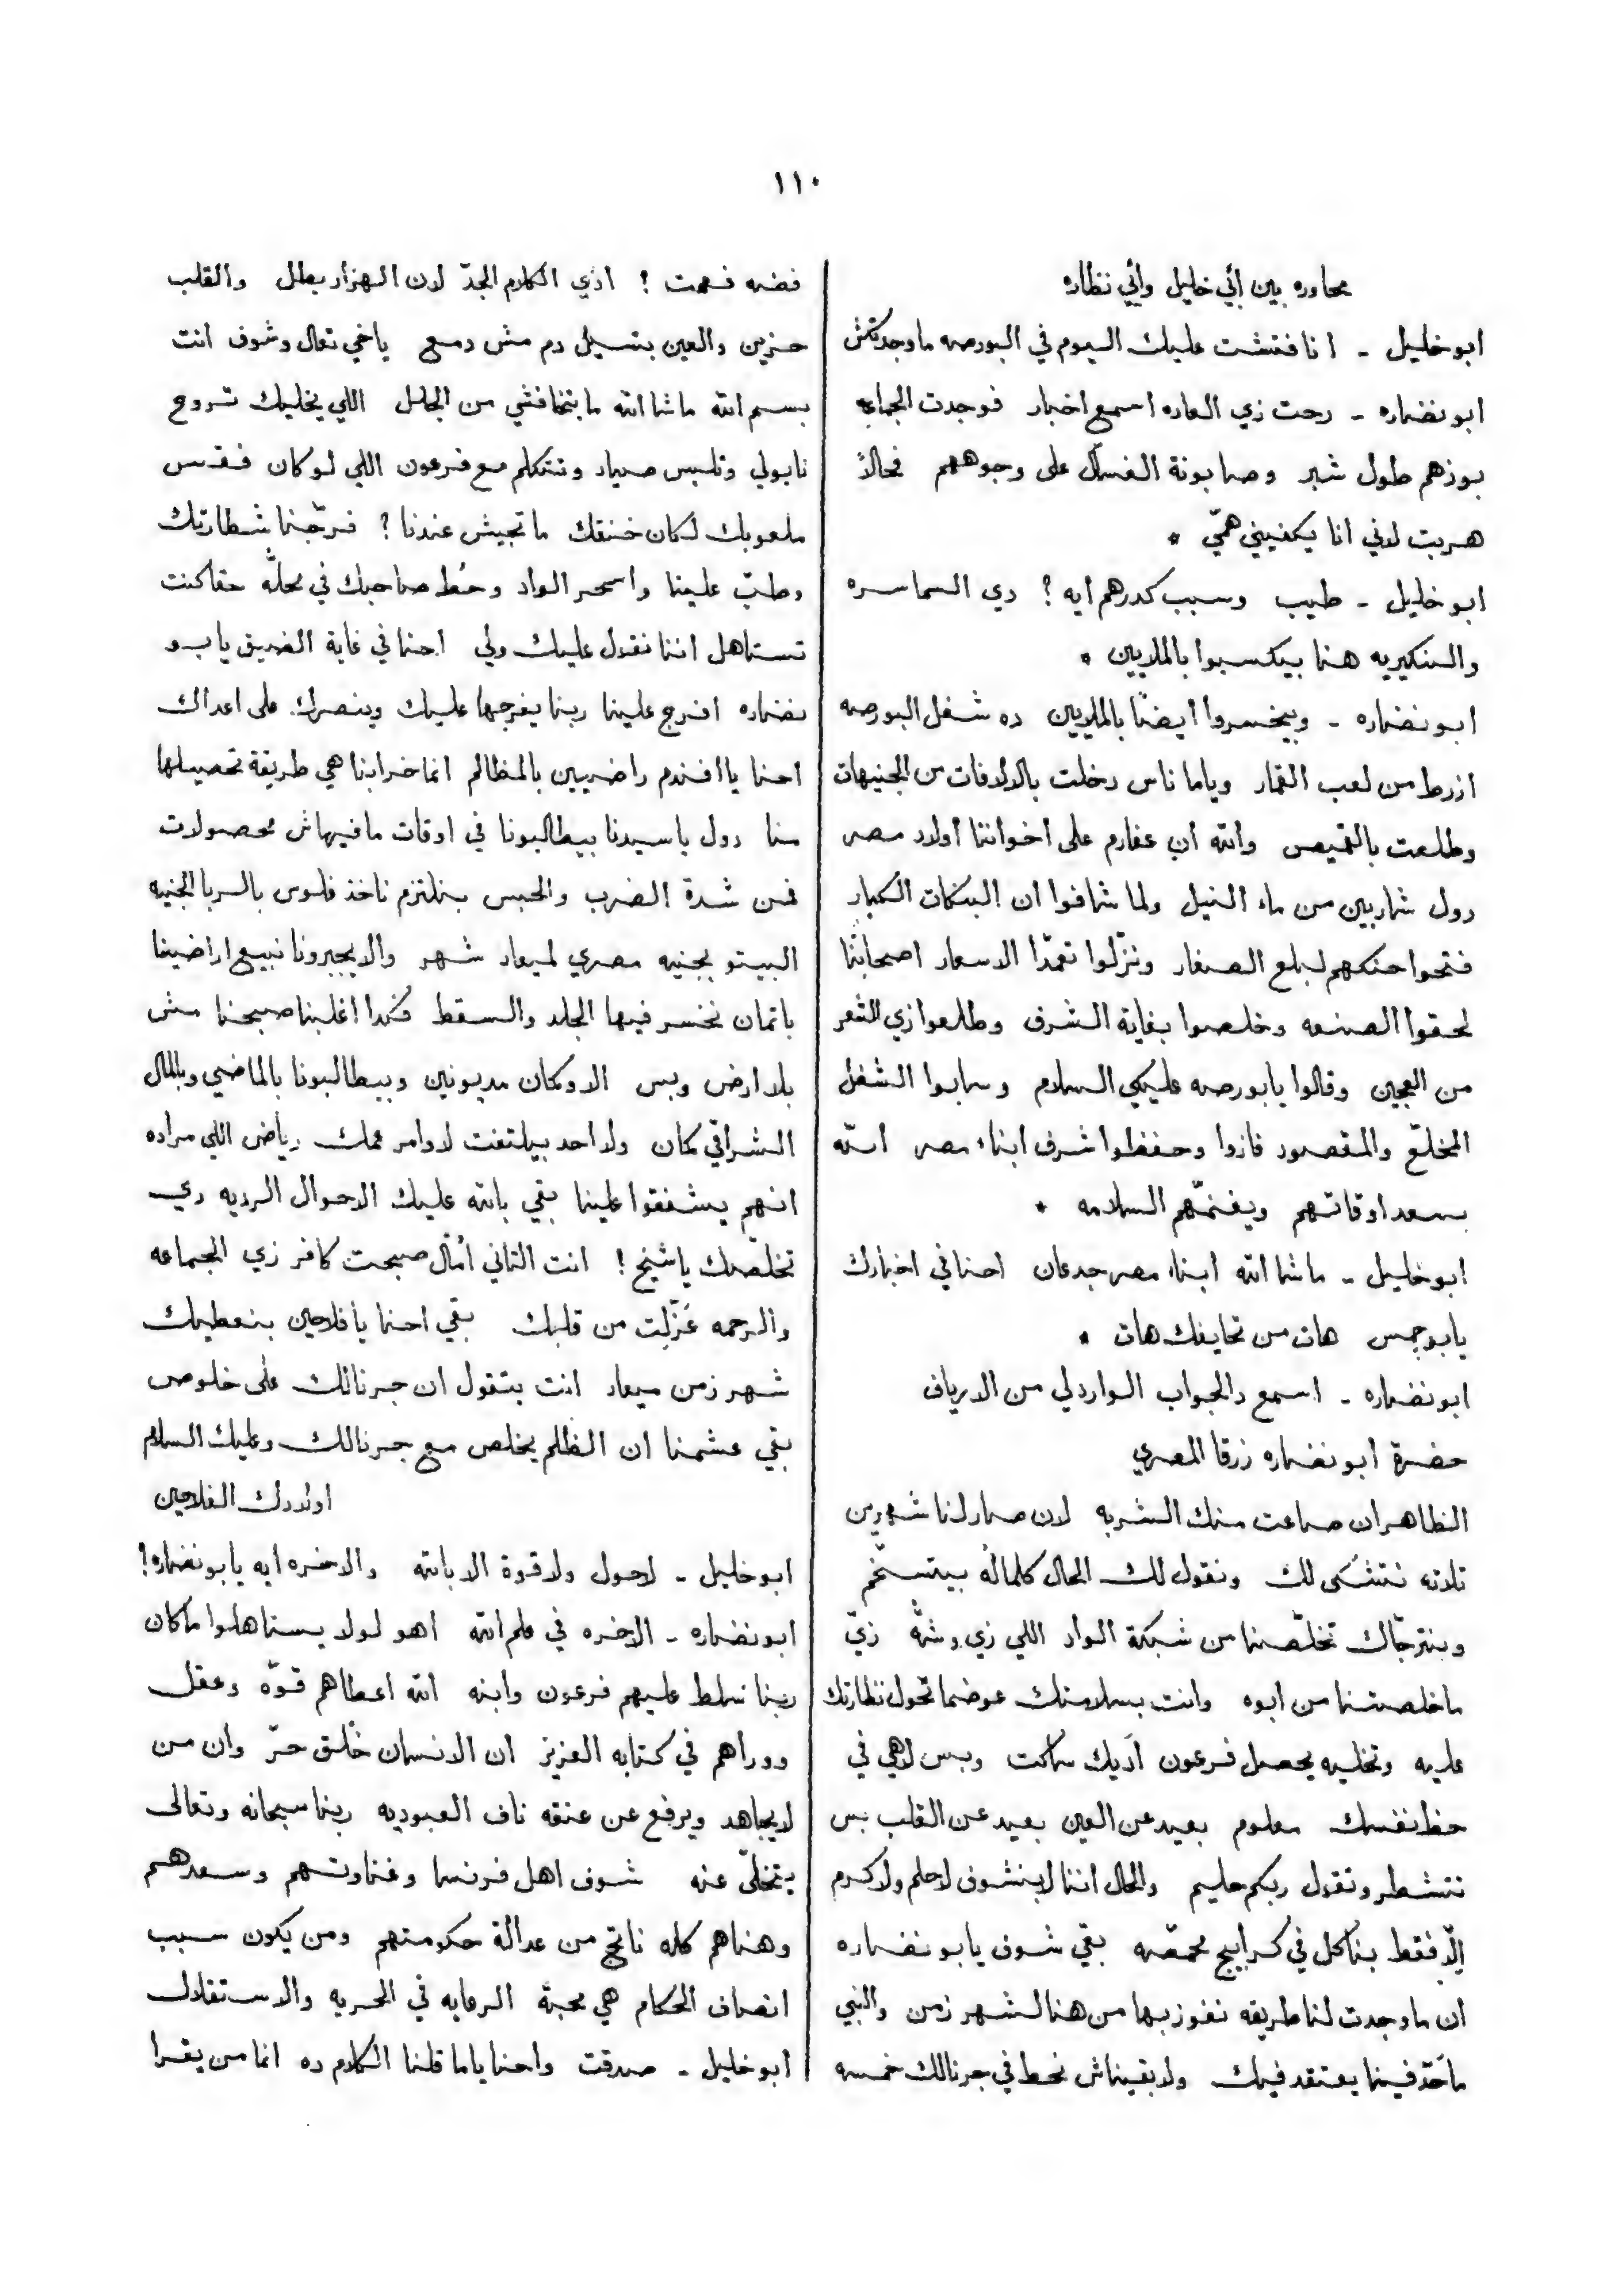 ١١٠
محاوره بين أبي خليل وأبي نظاره
ابو خليل - انا فتشت عليك اليوم في البورصه ما وجدتكش
ابو نضاره - رحت زي العاده اسمع اخبار فوجدت الجماعه
بوزهم طول شبر وصابونة الغسال على وجوههم فحالاً
هربت لاني انا يكفيني همّي *
ابو خليل - طيب وسبب كدرهم ايه ؟ دي السماسره
والبنكيريه هنا بيكسبوا بالملايين *
ابو نضاره - وبيخسروا أيضاً بالملايين ده شغل البورصه
ازرط من لعب القمار وياما ناس دخلت بالالافات من الجنيهات
وطلعت بالقميص والله ان عفارم على اخواننا أولاد مصر
دول شاربين من ماء النيل ولما شافوا ان البنكات الكبار
فتحوا حنكهم لبلع الصغار ونزّلوا تعمّدا الاسعار اصحابنا
لحقوا الصنعه وخلصوا بغاية الشرف وطلعوا زي الشعر
من العجين وقالوا يا بورصه عليكي السلام وسابوا الشغل
المخلّع والمقصود فازوا وحفظوا شرف ابناء مصر الله
يسعد اوقاتهم ويغنمّهم السلامه *
ابو خليل - ما شا الله ابناء مصر جدعان احنا في اخبارك
يا بو جمس هات من تحايفك هات *
ابو نضاره - اسمع دالجواب الوارد لي من الارياف
حضرة أبو نضاره زرقا المصري
الظاهر ان ضاعت منك الشربه لان صار لنا شهرين
تلاته نتشكى لك ونقول لك الحال كلماله بيتسخّم
وبنترجّاك تخلّصنا من شبكة الواد اللي زي وشه زيّ
ما خلصتنا من ابوه وانت بسلامتك عوضما تحول نظارتك
عليه وتخليه يحصل فرعون اديك ساكت وبس لاهي في
حظ نفسك معلوم بعيد عن العين بعيد عن القلب بس
تتشطر وتقول ربكم حليم والحال اننا لا بنشوف لا حلم ولا كرم
الّا فقط بناكل في كرابيج محمصه بقي شوف يا بو نضاره
ان ما وجدت لنا طريقه نفوز بها من هنا لشهر زمن والنبي
ما حدّ فينا يعتقد فيك ولا بقيناش نحط في جرنالك خمسه
فضه فهمت ! ادي الكلام الجدّ لان الهزار بطل والقلب
حزين والعين بتسيل دم مش دمع يا خي تعال وشوف انت
بسم الله ما شا الله ما بتخافشي من الجلل اللي يخليك تروح
نابولي وتلبس صياد وتتكلم مع فرعون اللي لو كان فقس
ملعوبك لكان خنقك ما تجيش عندنا ؟ فرّجنا شطارتك
وطبّ علينا واسحر الواد وحُط صاحبك في محلّه حقا كنت
تستاهل اننا نقول عليك ولي احنا في غاية الضيق يا بو
نضاره افرج علينا ربنا يفرجها عليك وينصرك على اعداك
احنا يا افندم راضيين بالمظالم انما خرابنا هي طريقة تحصيلها
منا دول يا سيدنا بيطالبونا في اوقات ما فيهاش محصولات
فمن شدة الضرب والحبس بنلتزم ناخذ فلوس بالربا الجنيه
البينتو بجنيه مصري لميعاد شهر والا يجبرونا نبيع اراضينا
باتمان نخسر فيها الجلد والسقط فكدا اغلبنا صبحنا مش
بلا ارض وبس الا وكمان مديونين وبيطالبونا بالماضي وبالمال
الشراقي كمان ولا احد بيلتفت لاوامر عمك رياض اللي مراده
انهم يشفقوا علينا بقي بالله عليك الاحوال الرديه دي
تخلّصك يا شيخ ! انت التاني أمّال صبحت كافر زي الجماعه
والرحمه عزّلت من قلبك بقي احنا يا فلاحين بنعطيك
شهر زمن ميعاد انت بتقول ان جرنالك على خلوص
بقي عشمنا ان الظلم يخلص مع جرنالك وعليك السلام
اولادك الفلاحين
ابو خليل - لاحول ولا قوة الا بالله والاخره ايه يا بو نضاره !
ابو نضاره - الاخره في علم الله اهو لولا يستاهلوا ما كان
ربنا سلط عليهم فرعون وابنه الله اعطاهم قوّه وعقل
ووراهم في كتابه العزيز ان الانسان خُلق حرّ وان من
لا يجاهد ويرفع عن عنقه ناف العبوديه ربنا سبحانه وتعالى
يتخلّى عنه شوف اهل فرنسا وغناوتهم وسعدهم
وهناهم كله ناتج من عدالة حكومتهم ومن يكون سبب
انصاف الحكام هي محبة الرعايه في الحريه والاستقلال
أبو خليل - صدقت واحنا ياما قلنا الكلام ده انما من يقرا